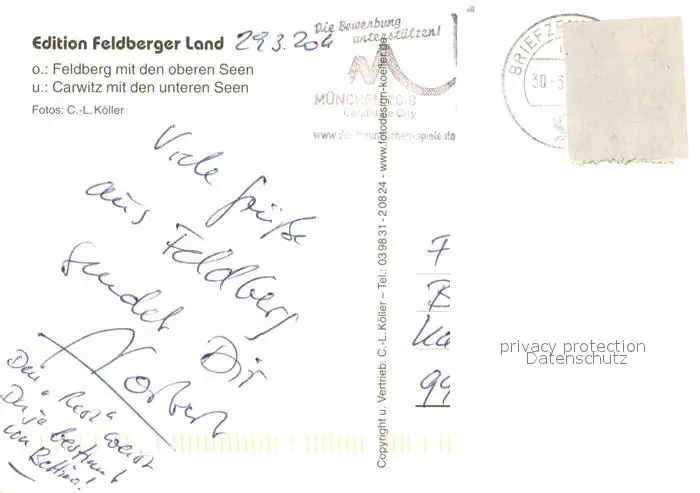 Edition Feldberger Land
29.3.2011
o.: Feldberg mit den oberen Seen
u.: Carwitz mit den unteren Seen
Fotos: C.-L. Köller
Die Bewerbung
unterstützen!
MÜNCHEN 2018
Candidate City
BRIEFZEN
30.-3
Viele Grüße
aus Feldberg
sendet Dir
Norbert
Den "Rest" weißt
Du ja bestimmt
von Bettina!
Copyright u. Vertrieb: C.-L. Köller – Tel.: 039831 - 20824 - www.fotodesign-koeller.de
F
B
Ka
99
privacy protection
Datenschutz